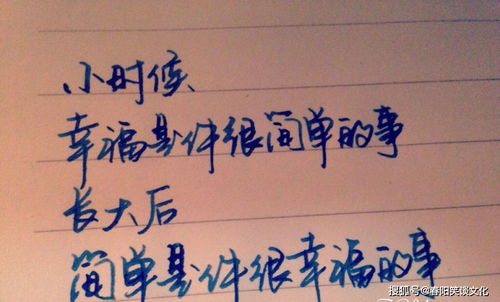 小时候、
幸福是件很简单的事
长大后
简单是件很幸福的事
搜狐号@春阳笑谈文化